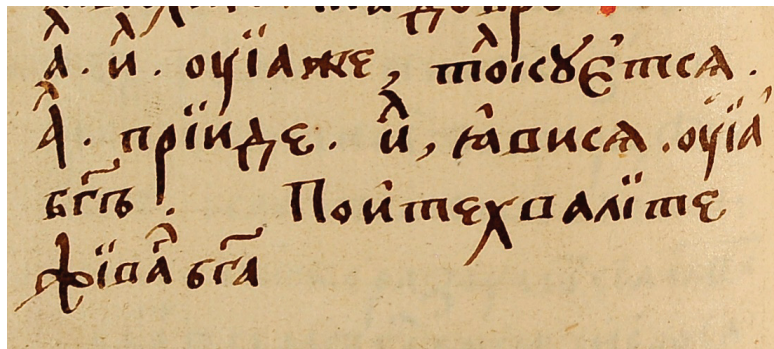 аⷧ. иⷧ. оуїаже, тоⷧкꙋе́тсѧ.
аⷧ. прїиде. иⷧ, ꙗ҆висѧ. оуїа
бг҃ъ. Поитехвалїте
жїваⷢ бг҃а